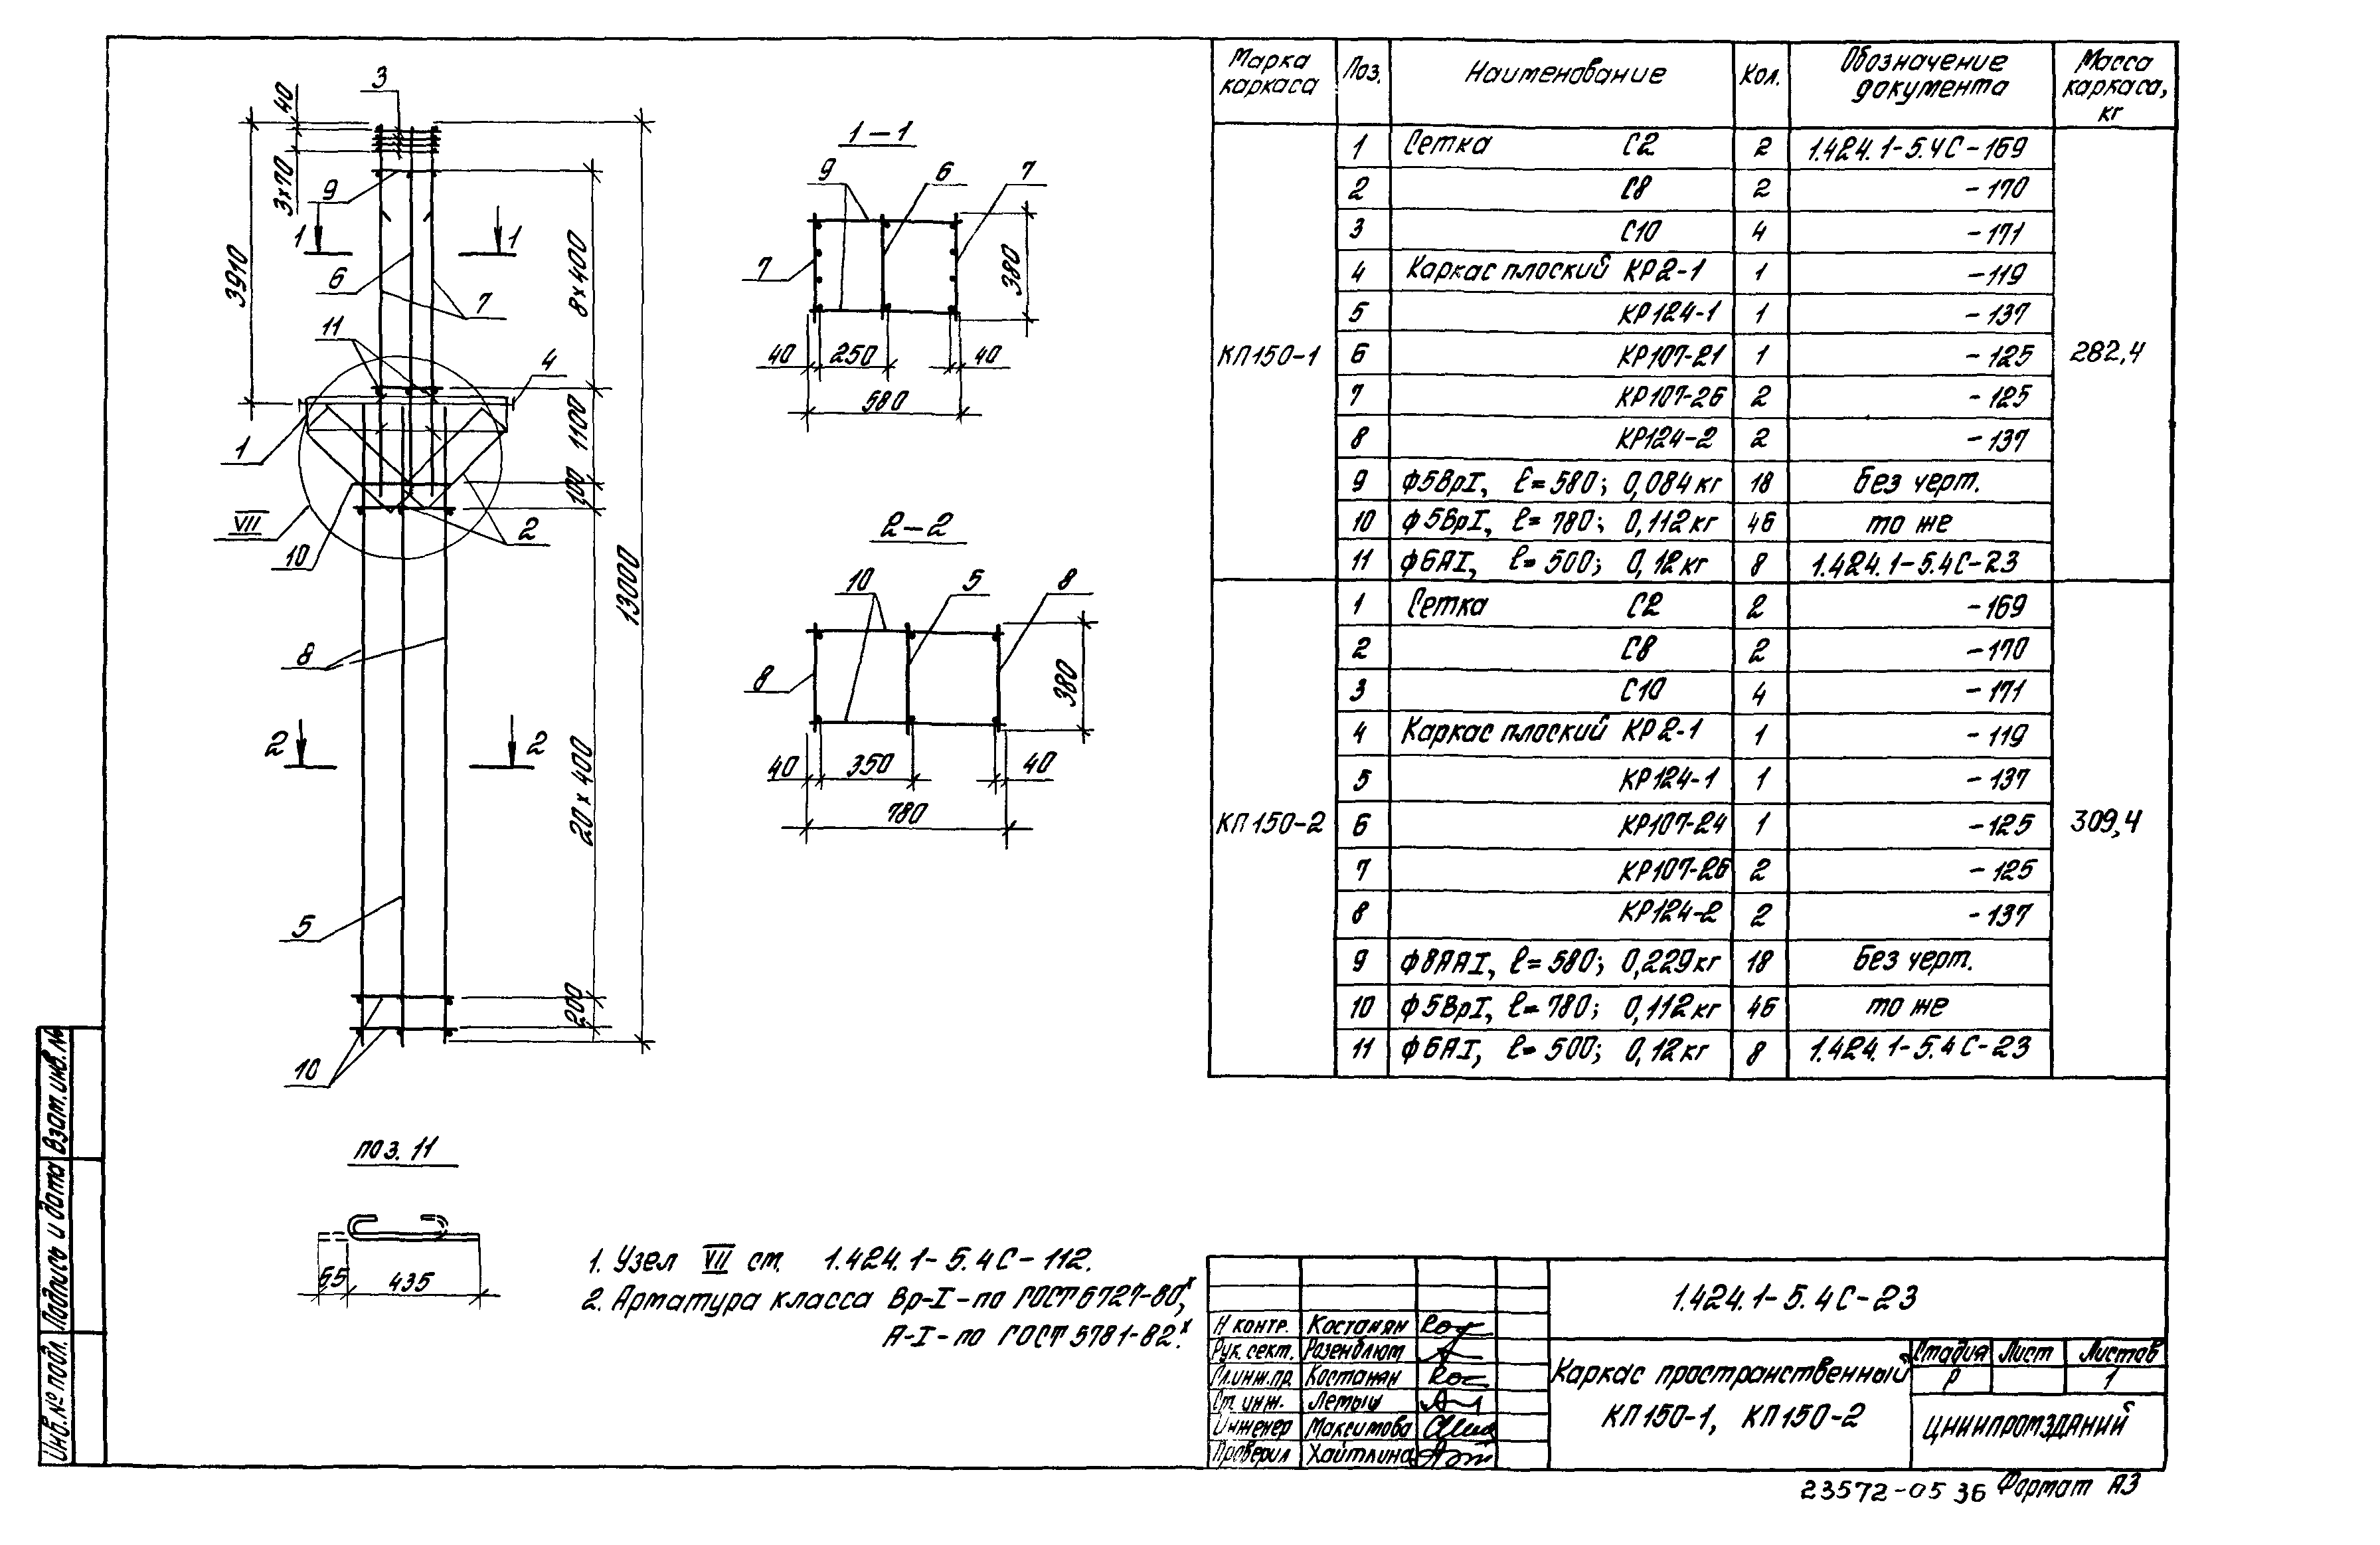 3
40
3×70
3910
9
1
1
6
7
11
4
1
VII
10
2
8×400
1100
100
13000
8
2
2
20×400
5
200
10
1–1
9
6
7
7
380
40
250
40
580
2–2
10
5
8
8
380
40
350
40
780
поз. 11
55
435
1. Узел VII ст. 1.424.1-5.4С-112.
2. Арматура класса Вр-I-по ГОСТ 6727-80ˣ,
А-I-по ГОСТ 5781-82ˣ.
Марка каркаса Поз. Наименование Кол. Обозначение документа Масса каркаса, кг
КП150-1 282,4
1 Сетка С2 2 1.424.1-5.4С-169
2 С8 2 -170
3 С10 4 -171
4 Каркас плоский КР2-1 1 -119
5 КР124-1 1 -137
6 КР107-21 1 -125
7 КР107-26 2 -125
8 КР124-2 2 -137
9 ф5ВрI, ℓ=580; 0,084кг 18 без черт.
10 ф5ВрI, ℓ=780; 0,112кг 46 то же
11 ф6АI, ℓ=500; 0,12кг 8 1.424.1-5.4С-23
КП150-2 309,4
1 Сетка С2 2 -169
2 С8 2 -170
3 С10 4 -171
4 Каркас плоский КР2-1 1 -119
5 КР124-1 1 -137
6 КР107-24 1 -125
7 КР107-26 2 -125
8 КР124-2 2 -137
9 ф8ААI, ℓ=580; 0,229кг 18 без черт.
10 ф5ВрI, ℓ=780; 0,112кг 46 то же
11 ф6АI, ℓ=500; 0,12кг 8 1.424.1-5.4С-23
Н контр. Костанян
Рук. сект. Розенблюм
Гл.инж.пр. Костанян
Ст. инж. Летыш
Инженер Макситова
Проверил Хайтлина
1.424.1-5.4С-23
Каркас пространственный
КП150-1, КП150-2
Стадия Лист Листов
Р 1
ЦНИИПРОМЗДАНИЙ
23572-05 36 Формат А3
Взам.инв.№
Подпись и дата
Инв.№ подл.